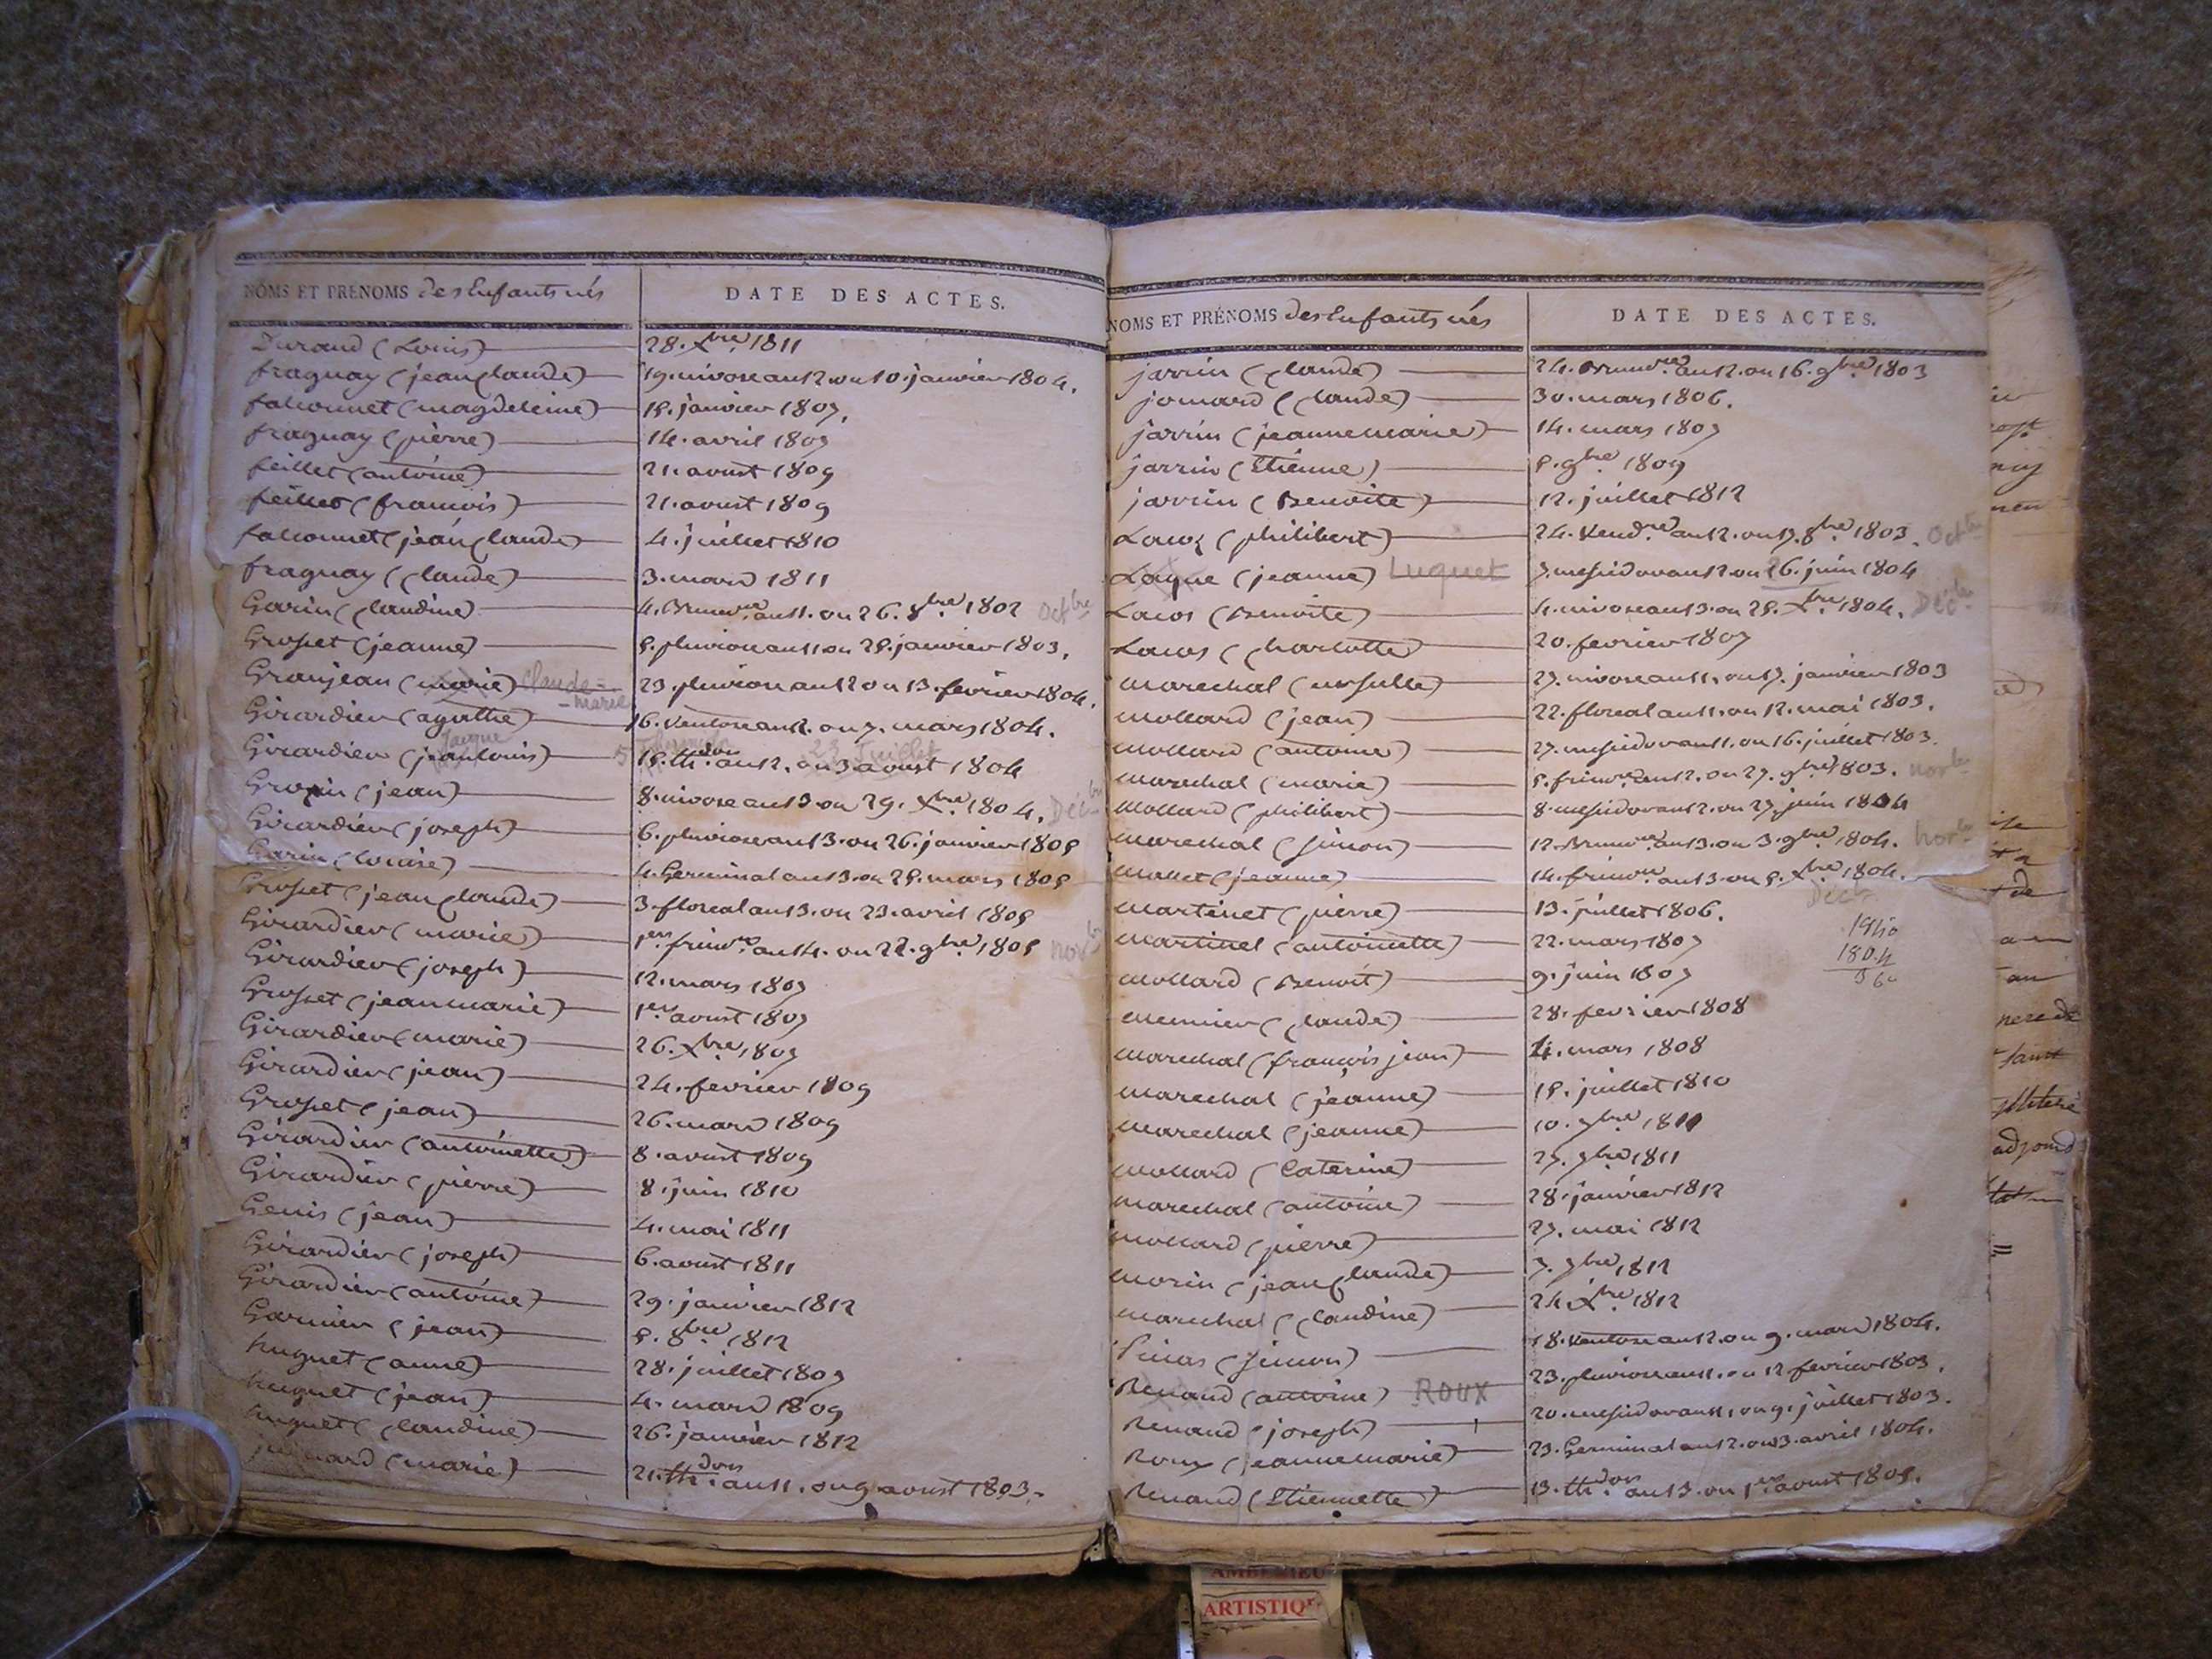 NOMS ET PRENOMS des Enfants nés
DATE DES ACTES.
Durand (Louis) 28. Xbre 1811
fraguay (jean claude) 19. nivose an 12. ou 10. janvier 1804.
falconnet (magdeleine) 15. janvier 1807.
fraguay (pierre) 14. avril 1807
feillet (antoine) 21. avust 1809
feillet (francois) 21. avust 1809
falconnet (jean claude) 4. juillet 1810
fraguay (claude) 3. mars 1811
Garin (claudine) 4. Brumre an 11. ou 26. 8bre 1802 Octbre
Grosset (jeanne) 5. pluviose an 11 ou 25. janvier 1803.
Granjean (marie) Claude-marie 23. pluviose an 12 ou 13. fevrier 1804.
Girardier (agathe) 16. Ventose an 12. ou 7. mars 1804.
Jacque 23 Juillet
Girardier (jean louis) 15. thdor an 12. ou 3 avust 1804
(jean) 8. nivose an 13 ou 29. Xbre 1804. Décbre
Girardier (joseph) 6. pluviose an 13. ou 26. janvier 1805
Garin (louise) 4. Germinal an 13. ou 25. mars 1805
Grosset (jean claude) 3. floreal an 13. ou 23. avril 1805
Girardier (marie) 1er frimre an 14. ou 22. 9bre 1805 novbre
Girardier (joseph) 12. mars 1807
Grosset (jean marie) 1er avust 1807
Girardier (marie) 26. Xbre 1807
Girardier (jean) 24. fevrier 1809
Grosset (jean) 26. mars 1809
Girardier (antoinette) 8. avust 1809
Girardier (pierre) 8. juin 1810
Genis (jean) 4. mai 1811
Girardier (joseph) 6. avust 1811
Girardier (antoine) 29. janvier 1812
Garnier (jean) 5. 8bre 1812
huguet (anne) 28. juillet 1807
huguet (jean) 4. mars 1809
huguet (claudine) 26. janvier 1812
(marie) 21. thdor an 11. ou 9 avust 1803.
NOMS ET PRÉNOMS des Enfants nés
DATE DES ACTES.
jarrin (claude) 24. Brumre an 12. ou 16. 9bre 1803
jomard (claude) 30. mars 1806.
jarrin (jeanne marie) 14. mars 1807
jarrin (Etienne) 5. 9bre 1809
jarrin (Benoite) 12. juillet 1812
(philibert) 24. Vendre an 12. ou 17. 8bre 1803. Octbre
Laque (jeanne) Luquet 7. messidor an 12 ou 26. juin 1804
Lacos (Benoite) 4. nivose an 13. ou 25. Xbre 1804. Décbre
Lacos (charlotte) 20. fevrier 1807
marechal (ursulle) 27. nivose an 11. ou 17. janvier 1803
mollard (jean) 22. floreal an 11. ou 12. mai 1803.
mollard (antoine) 27. messidor an 11. ou 16. juillet 1803.
marechal (marie) 5. frimre an 12. ou 27. 9bre 1803. novbre
mollard (philibert) 8. messidor an 12. ou 27. juin 1804
marechal (simon) 12. Brumre an 13. ou 3. 9bre 1804. novbre
mallet (jeanne) 14. frimre an 13. ou 5. Xbre 1804.
Décb
martinet (pierre) 13. juillet 1806.
1804
martinet (antoinette) 22. mars 1807
mollard (Benoit) 9. juin 1807
(claude) 28. fevrier 1808
marechal (francois jean) 4. mars 1808
marechal (jeanne) 15. juillet 1810
marechal (jeanne) 10. 9bre 1811
mollard (Caterine) 27. 9bre 1811
marechal (antoine) 28. janvier 1812
mollard (pierre) 27. mai 1812
morin (jean claude) 7. 9bre 1812
marechal (claudine) 24 Xbre 1812
Pinas (simon) 18. Ventose an 12. ou 9. mars 1804.
Renaud (antoine) ROUX 23. pluviose an 11. ou 12 fevrier 1803.
Renaud (joseph) 20. messidor an 11. ou 9. juillet 1803.
Roux (jeanne marie) 23. Germinal an 12. ou 3. avril 1804.
Renaud (Etiennette) 13. thdor an 13. ou 1er avust 1805.
ARTISTIQ